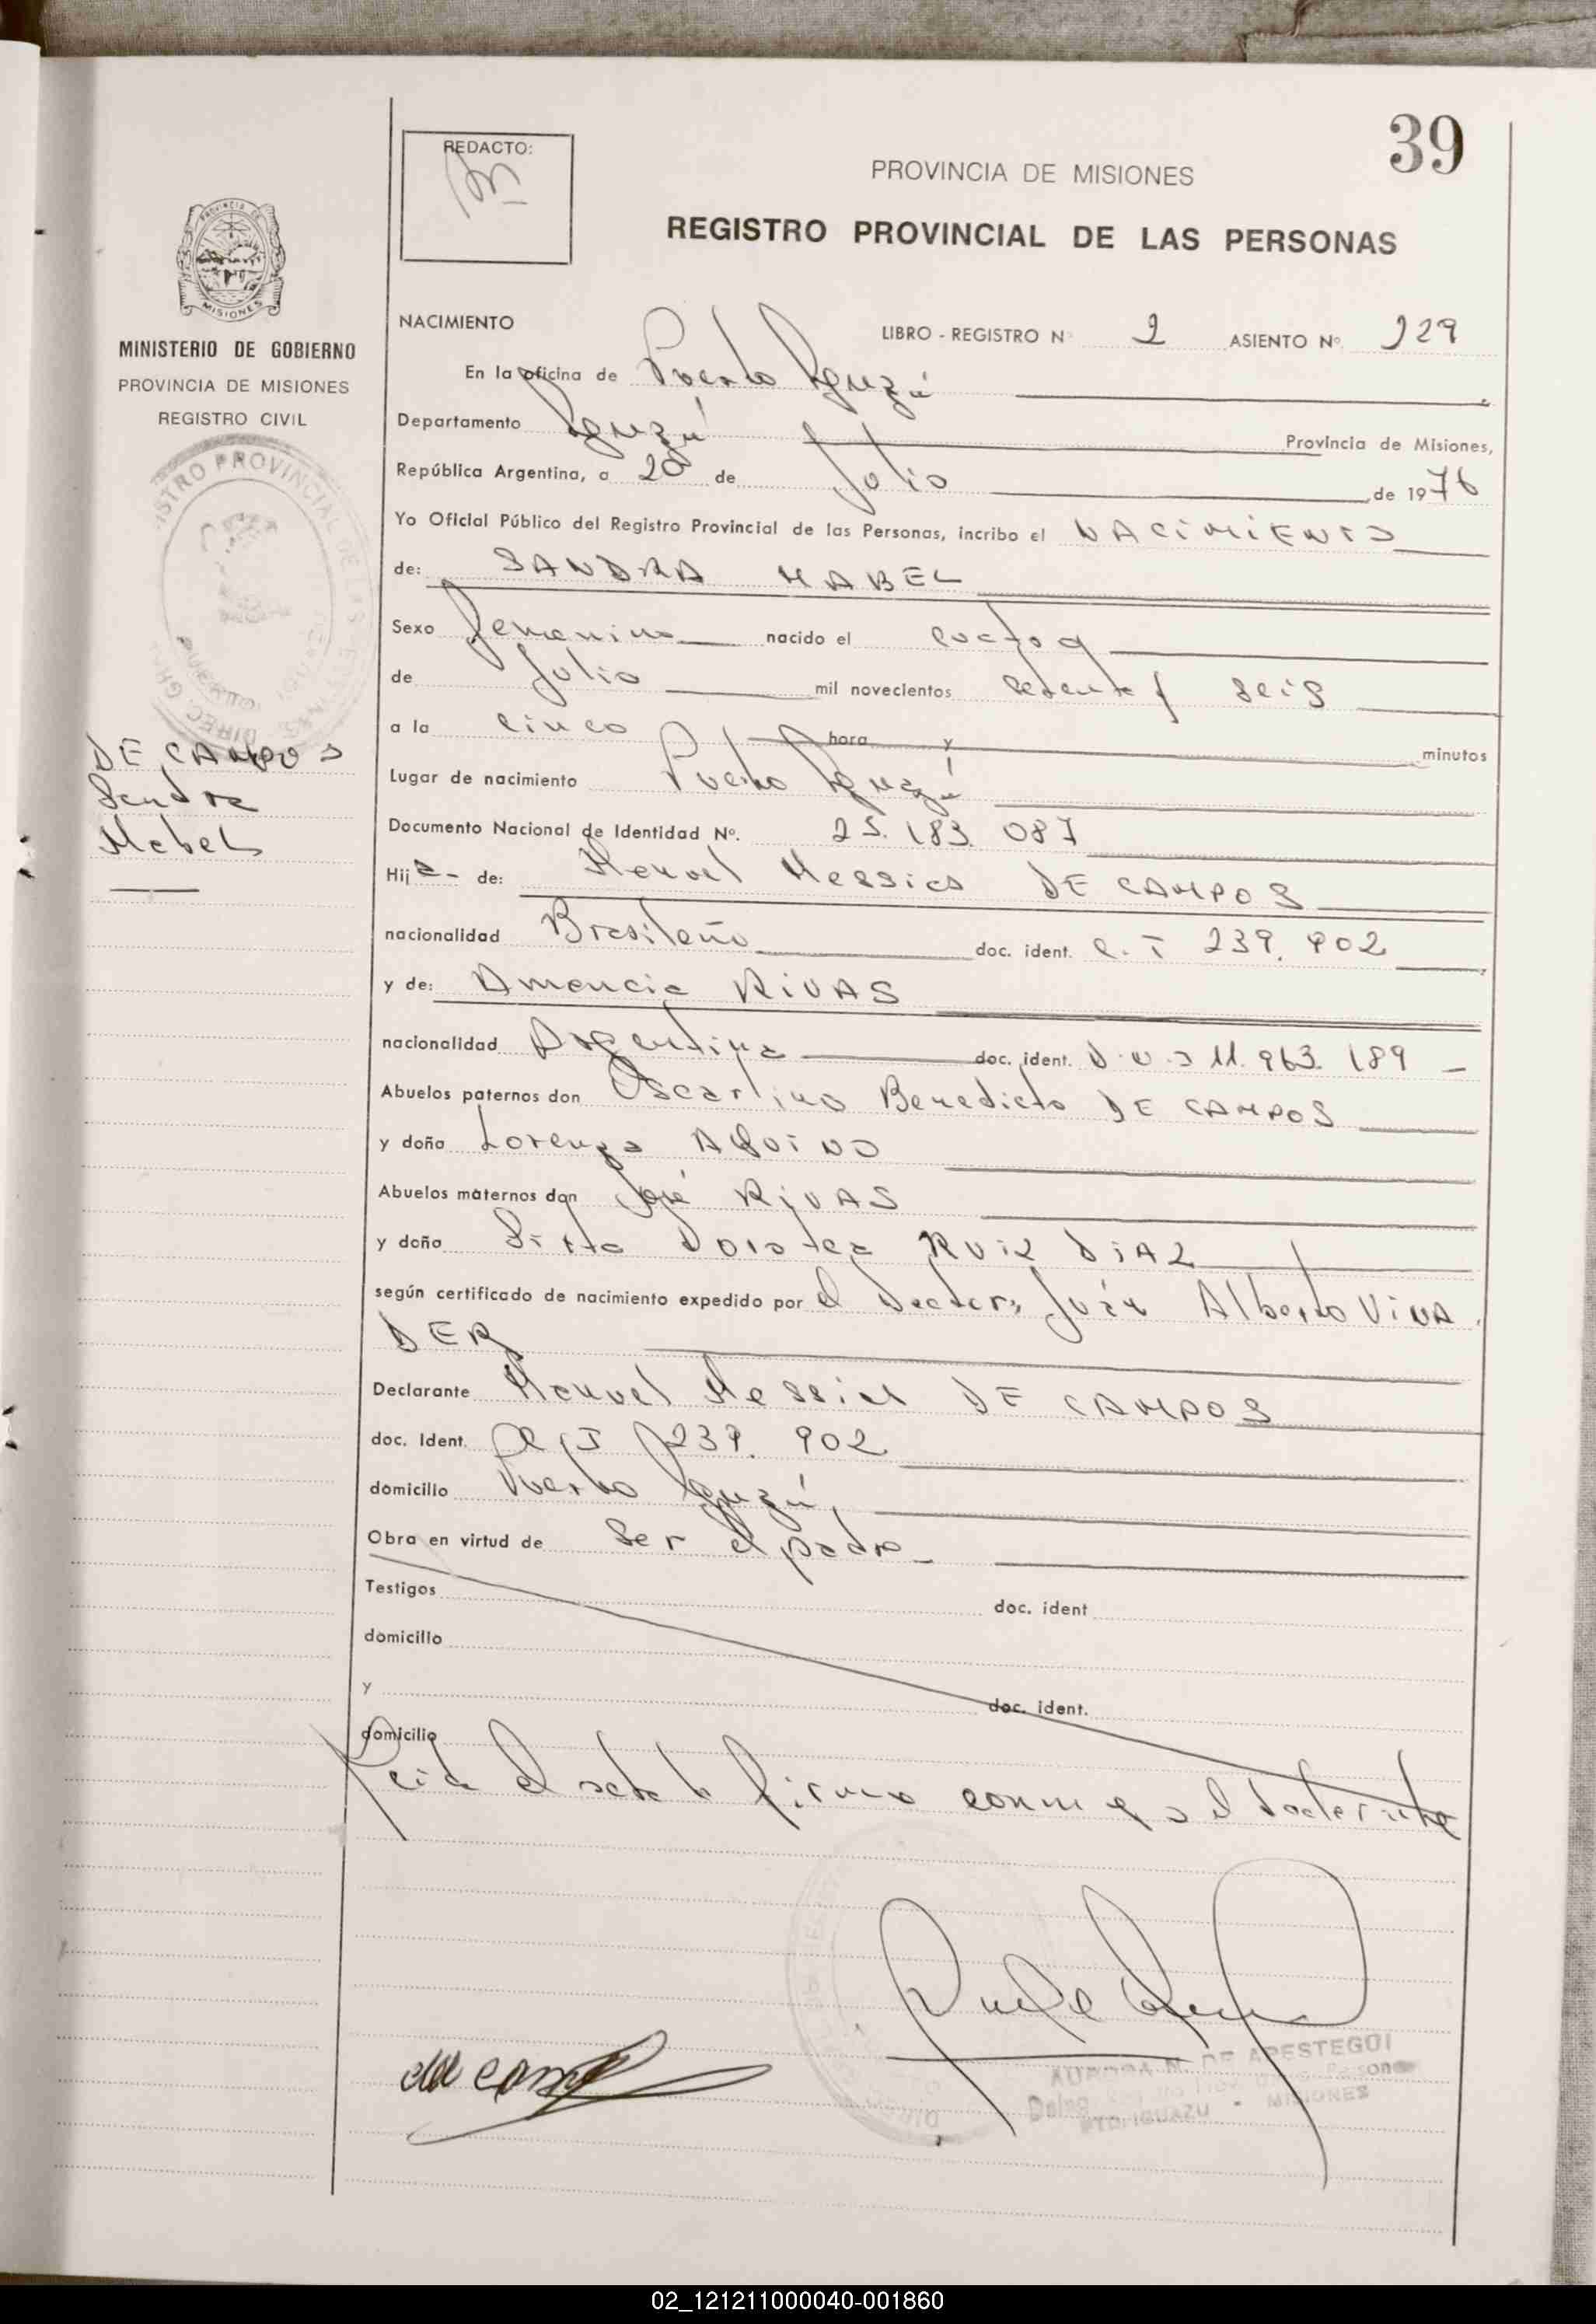 39
REDACTO:
PROVINCIA DE MISIONES
REGISTRO PROVINCIAL DE LAS PERSONAS
PROVINCIA DE
MISIONES
MINISTERIO DE GOBIERNO
PROVINCIA DE MISIONES
REGISTRO CIVIL
NACIMIENTO LIBRO - REGISTRO Nº 2 ASIENTO Nº 229
En la oficina de Puerto Iguazú
Departamento Iguazú Provincia de Misiones,
República Argentina, a 20 de Julio de 1976
Yo Oficial Público del Registro Provincial de las Personas, incribo el NACIMIENTO
de: SANDRA MABEL
Sexo femenino nacido el
de Julio mil novecientos setenta y seis
a la cinco hora y minutos
DE CAMPOS
Sandra
Mabel
Lugar de nacimiento Puerto Iguazú
Documento Nacional de Identidad Nº. 25.183.087
Hija - de: Manuel Messias DE CAMPOS
nacionalidad Brasileño doc. ident. C.I 239.902
y de: Amencia RIVAS
nacionalidad Argentina doc. ident. D.N.I 11.963.189 -
Abuelos paternos don Oscarlino Benedicto DE CAMPOS
y doña Lorenza AQUINO
Abuelos maternos don José RIVAS
y doña Dorotea RUIZ DIAZ
según certificado de nacimiento expedido por el Doctor, Juán Alberto VINA
DER
Declarante Manuel Messias DE CAMPOS
doc. Ident. C.I 239.902
domicilio Puerto Iguazú,
Obra en virtud de ser el padre -
Testigos doc. ident
domicilio
y doc. ident.
domicilio
Leida el acta la firma conmigo el declarante
AURORA N. DE APESTEGUI
PTO. IGUAZU - MISIONES
02_121211000040-001860